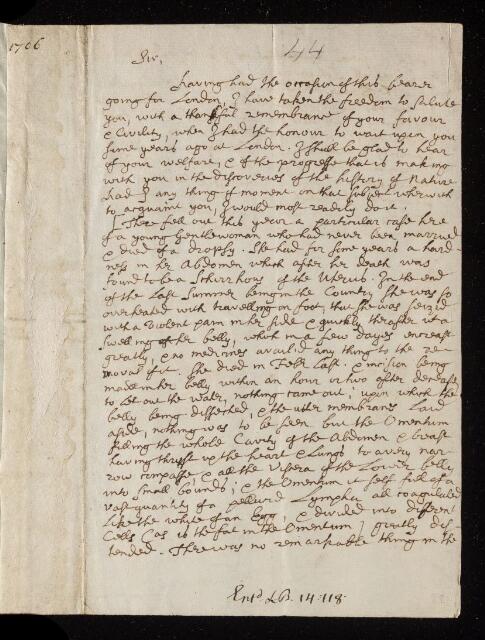 1706
44
Sir,
Having had the occasion of this bearer
going for London, I have taken the freedom to salute
you, with a thankful remembrance of your favour
& Civility, when I had the honour to wait upon you
some years ago at London. I shall be glad to hear
of your welfare, & of the progresse that is making
with you in the discoveries of the history of Nature
had I any thing of moment on that subject wherwith
to acquaint you, I would most readily do it.
There fell out this year a particular case here
of a young Gentlewoman who had never been married
& died of a dropsy. She had for some years a hard
ness in her Abdomen which after her death was
found to be a Schirrhous of the Uterus. In the end
of the Last Summer being in the Country she was so
overheated with travelling on foot, that she was seiz'd
with a violent pain in her side & quickly therafter wt a
swelling of her belly, which in a few dayes encreast
greatly, & no medicines avail'd any thing to the re
moval of it. She died in Febr Last. & incision being
made in her belly within an hour or two after decease
to Let out the water, nothing came out; upon which the
belly being dissected, & the utter membranes Laid
aside, nothing was to be seen but the Omentum
filling the whole Cavity of the Abdomen & breast
having thrust up the heart & Lungs to a very nar
row compasse, & all the Viscera of the Lower belly
into small bounds; & the Omentum it self full of a
vast quantity of a pellucid Lympha all coagulated
Like the white of an Egg & divided into different
Cells (as is the fat in the Omentum) greatly dis
tended. There was no remarkable thing in the
Entd LB. 14.118.